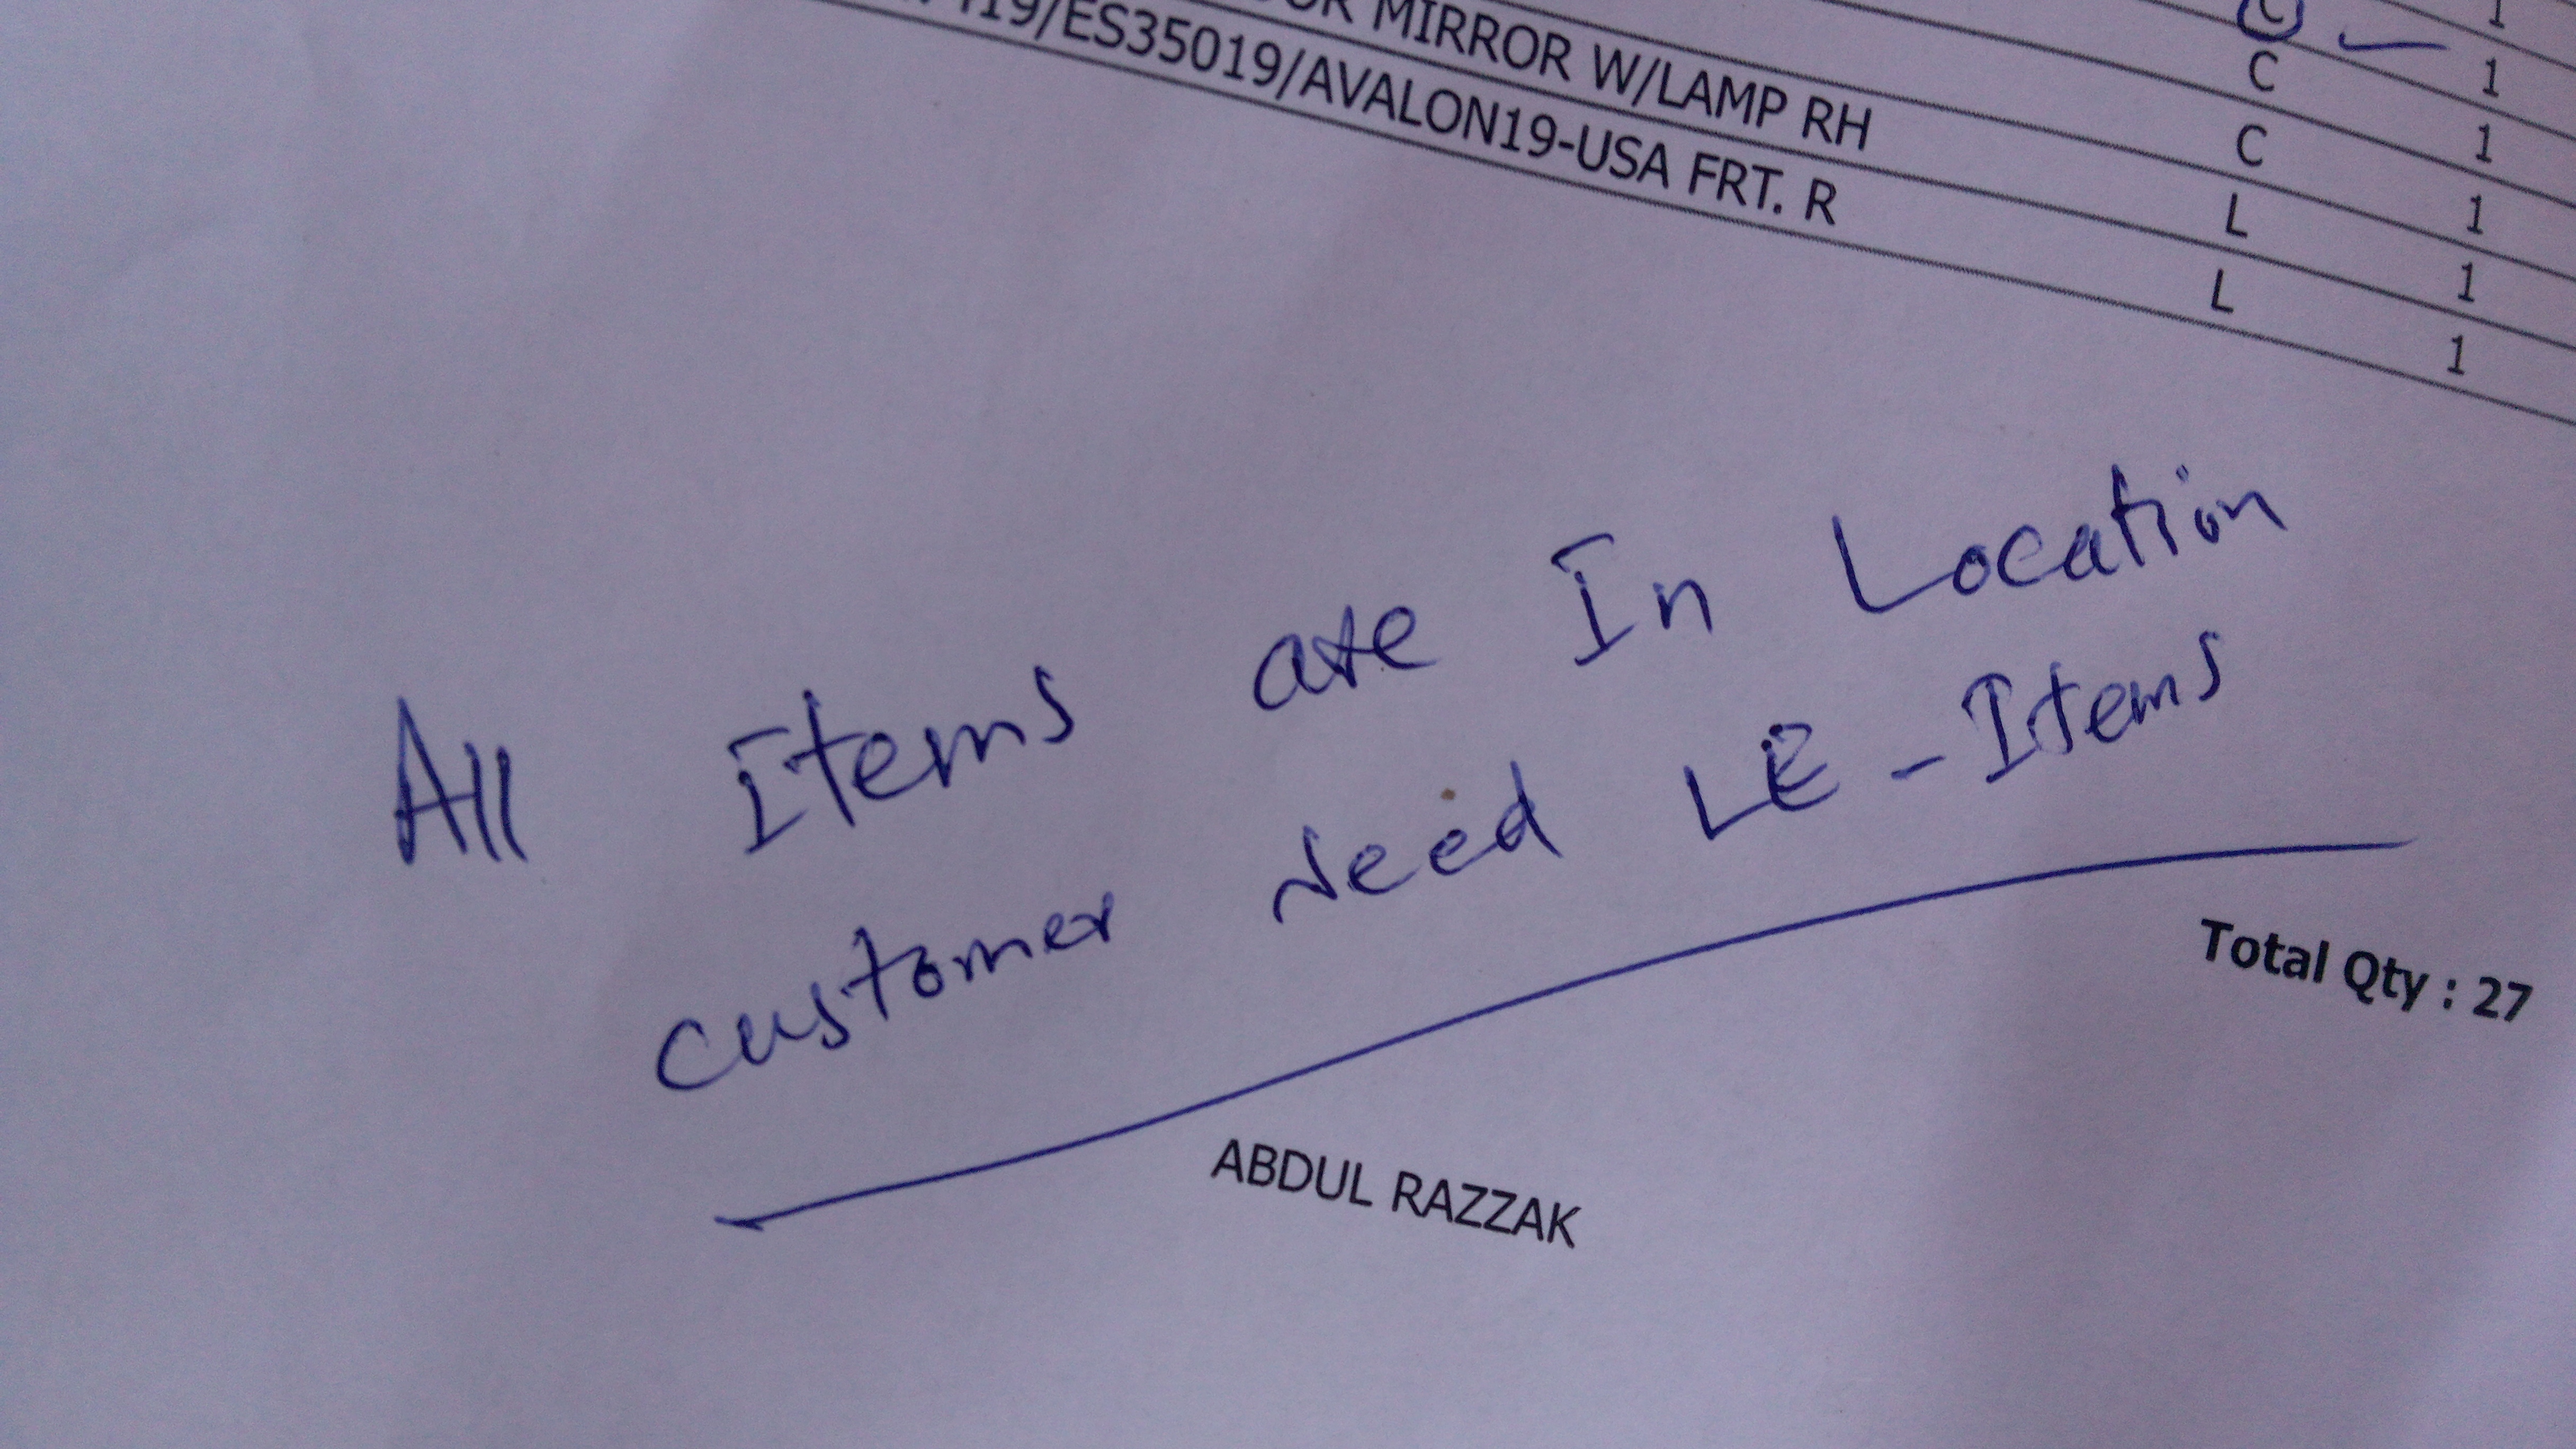 1
C 1
MIRROR W/LAMP RH C 1
19/ES35019/AVALON19-USA FRT. R L 1
L 1
1
All Items are In Location
customer Need LE - Items
Total Qty : 27
ABDUL RAZZAK